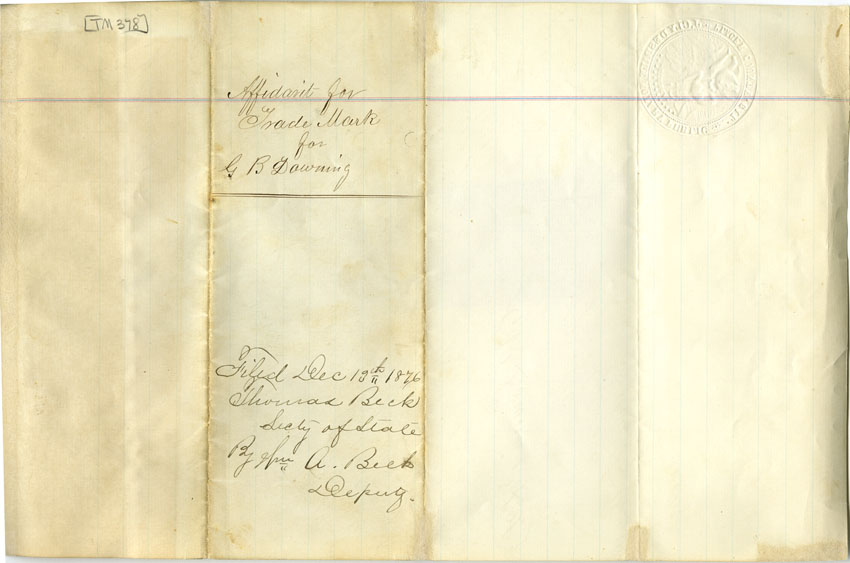 [TM 378]
Affidavit for
Trade Mark
for
G B Downing
Filed Dec 19th 1876
Thomas Beck
Secty of State
By Wm A. Beck
Deputy.